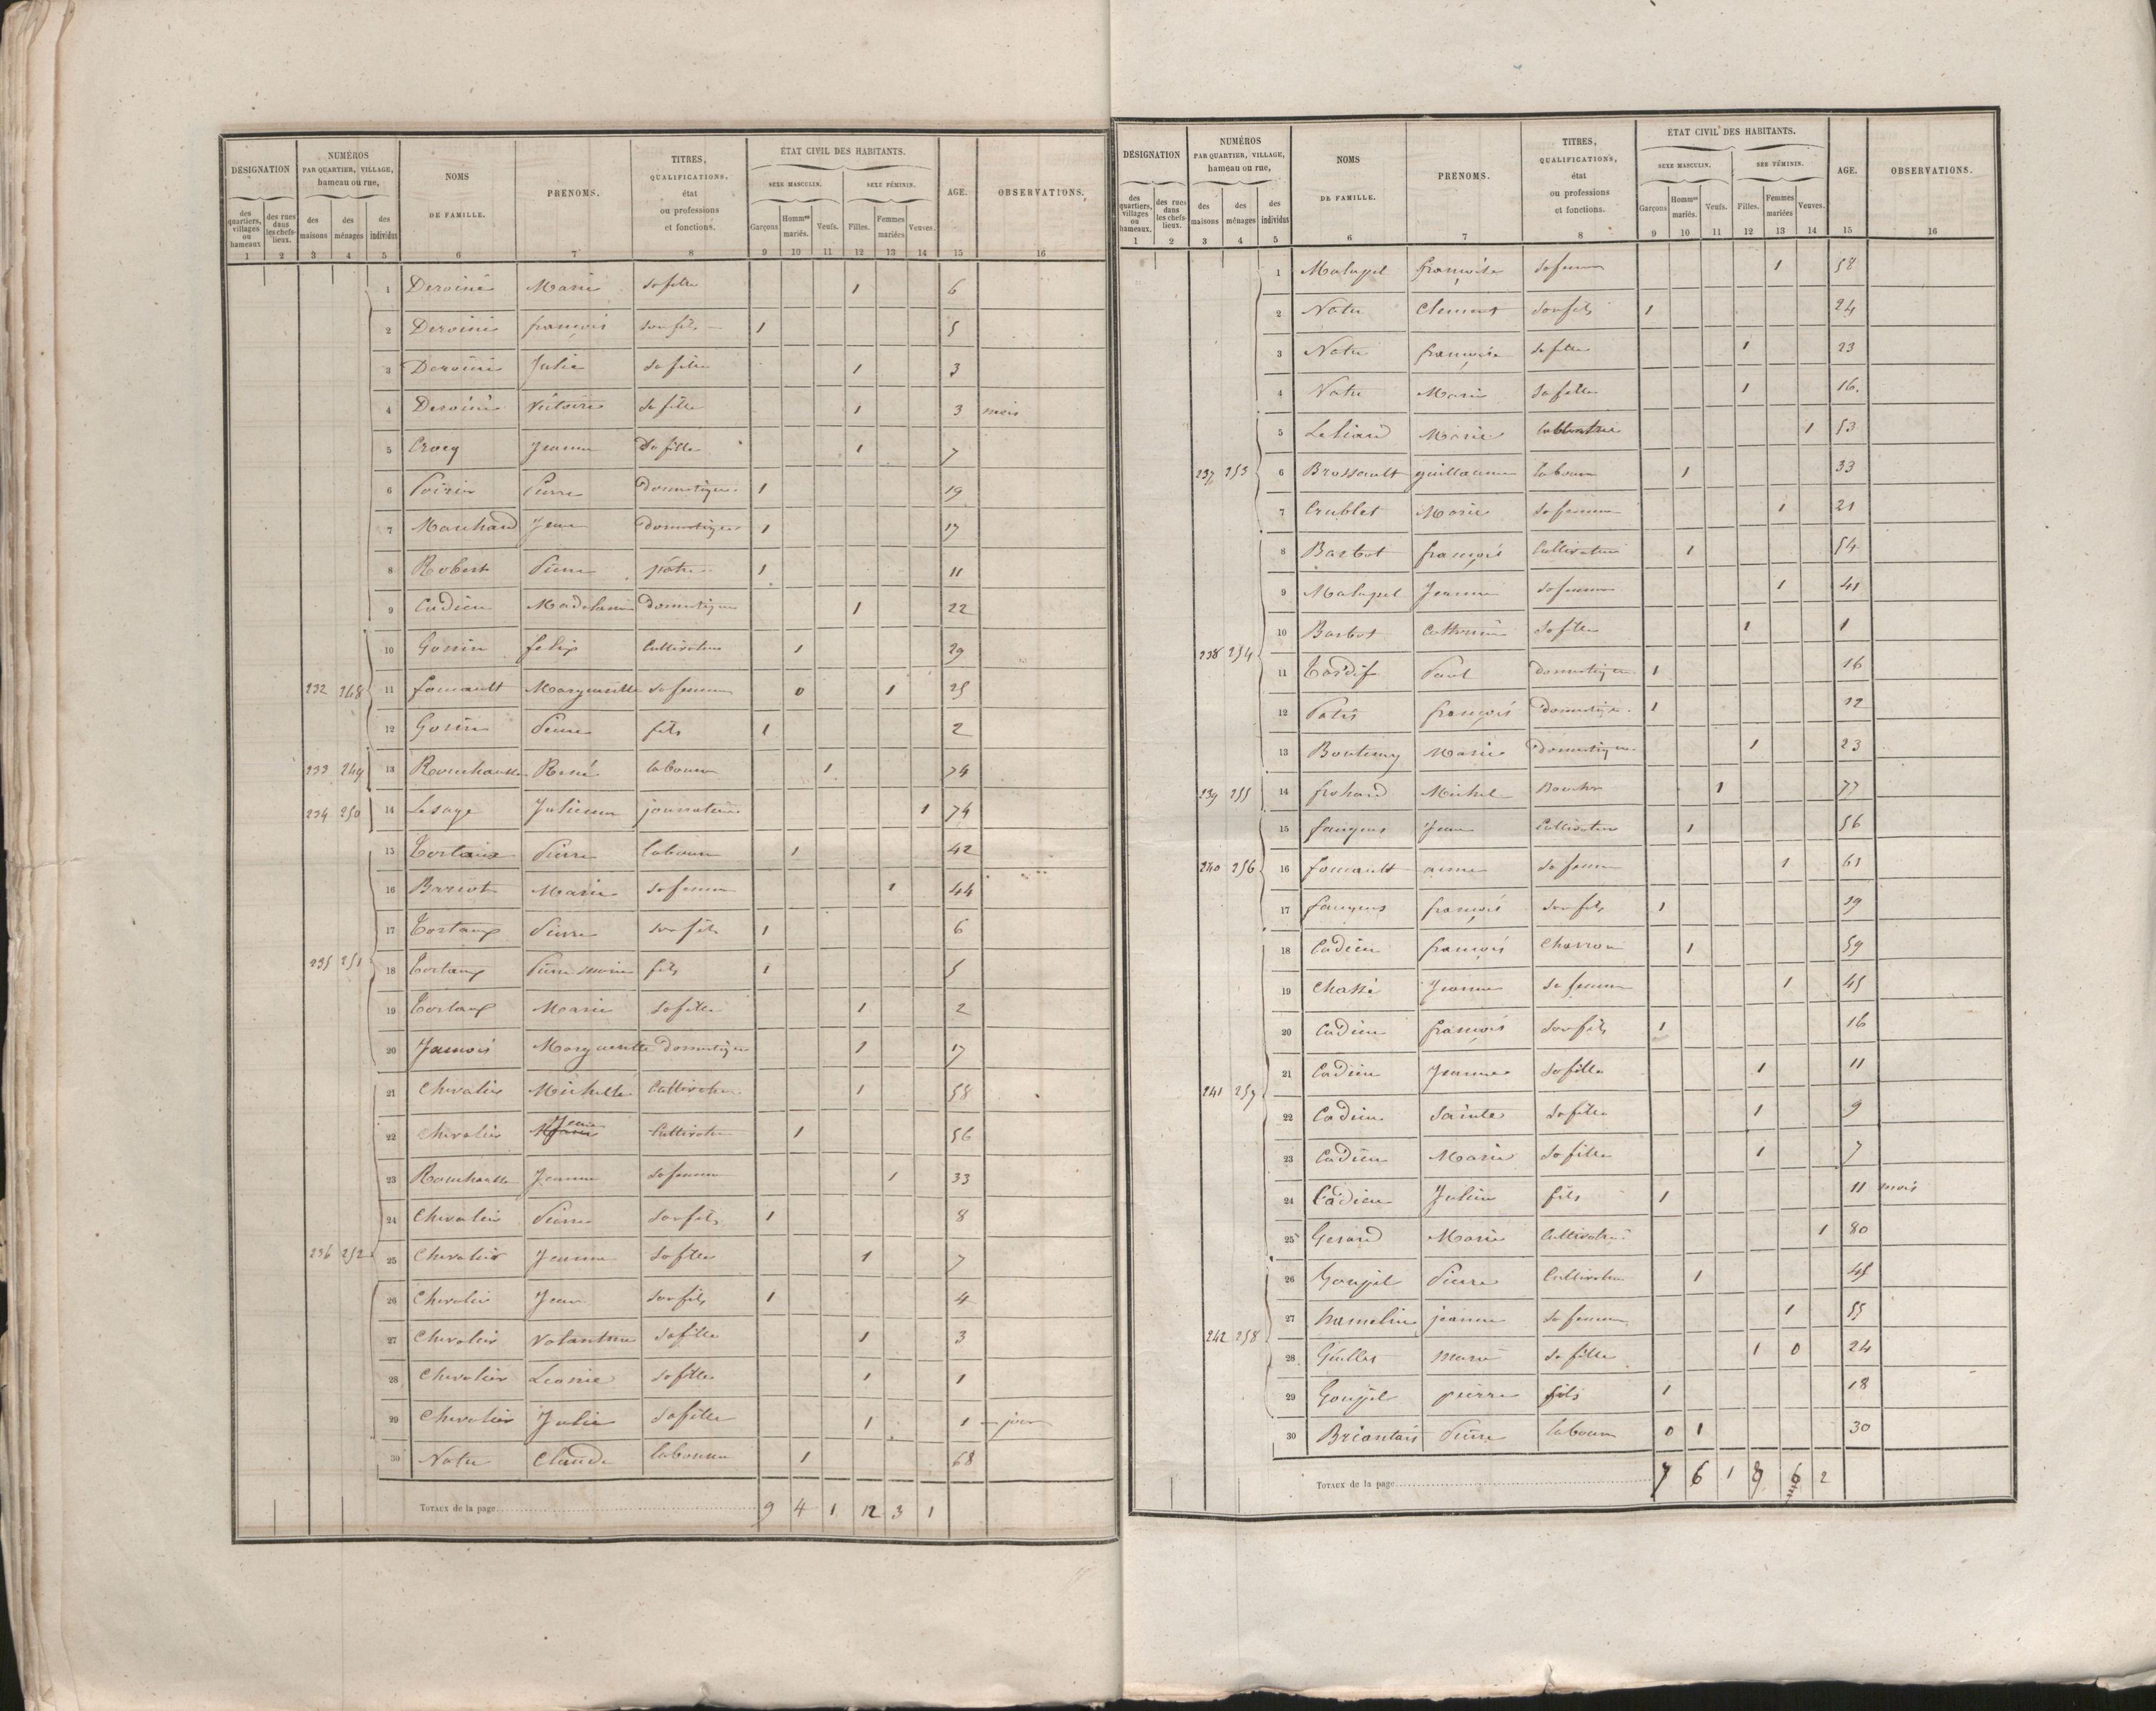 DÉSIGNATION NUMÉROS PAR QUARTIER, VILLAGE, hameau ou rue, NOMS DE FAMILLE. PRÉNOMS. TITRES, QUALIFICATIONS, état ou professions et fonctions. ÉTAT CIVIL DES HABITANTS. AGE. OBSERVATIONS.
SEXE MASCULIN. SEXE FÉMININ.
des quartiers, villages ou hameaux des rues dans les chefs-lieux. des maisons des ménages des individus Garçons Hommes mariés. Veufs. Filles. Femmes mariées Veuves.
1 2 3 4 5 6 7 8 9 10 11 12 13 14 15 16
1 Deroiné Marie sa fille 1 6
2 Deroiné françois son fils 1 5
3 Deroiné Julie sa fille 1 3
4 Deroiné Victoire sa fille 1 3 mois
5 Crocq Jeanne sa fille 1 7
6 Poirier Pierre domestique 1 19
7 Marchand Jean domestique 1 17
8 Robert Pierre pâtre 1 11
9 Cadieu Madelaine domestique 1 22
10 Gonin felix Cultivateur 1 29
232 248 11 foucault Margueritte sa femme 0 1 25
12 Gonin Pierre fils 1 2
233 249 13 René laboureur 1 74
234 250 14 Lesage Julienne journalière 1 74
15 Tortaux Pierre laboureur 1 42
16 Barcot Marie sa femme 1 44
17 Tortaux Pierre son fils 1 6
235 251 18 Tortaux Pierre marie fils 1 5
19 Tortaux Marie sa fille 1 2
20 Jamois Margueritte domestique 1 17
21 Chevalier Michelle Cultivatrice 1 58
22 Chevalier Jean Cultivateur 1 56
23 Jeanne sa femme 1 33
24 Chevalier Pierre son fils 1 8
236 252 25 Chevalier Jeanne sa fille 1 7
26 Chevalier Jean son fils 1 4
27 Chevalier Valantine sa fille 1 3
28 Chevalier Léonie sa fille 1 1
29 Chevalier Julie sa fille 1 1 jour
30 Natu Claude laboureur 1 68
TOTAUX de la page 9 4 1 12 3 1
DÉSIGNATION NUMÉROS PAR QUARTIER, VILLAGE, hameau ou rue, NOMS DE FAMILLE. PRÉNOMS. TITRES, QUALIFICATIONS, état ou professions et fonctions. ÉTAT CIVIL DES HABITANTS. AGE. OBSERVATIONS.
SEXE MASCULIN. SEXE FÉMININ.
des quartiers, villages ou hameaux. des rues dans les chefs-lieux. des maisons des ménages des individus Garçons Hommes mariés. Veufs. Filles. Femmes mariées Veuves.
1 2 3 4 5 6 7 8 9 10 11 12 13 14 15 16
1 Malapel françoise sa femme 1 58
2 Natu Clement son fils 1 24
3 Natu françoise sa fille 1 23
4 Natu Marie sa fille 1 16.
5 Marie 1 53
237 253 6 Brossault guillaume laboureur 1 33
7 Crublet Marie sa femme 1 21
8 Barbot françois Cultivateur 1 54
9 Malapel Jeanne sa femme 1 41
10 Barbot Catherine sa fille 1 1
238 254 11 Tardif Paul domestique 1 16
12 Patis françois domestique 1 12
13 Boutemy Marie domestique 1 23
239 255 14 frohard Michel 1 77
15 Jean Cultivateur 1 56
240 256 16 foucault anne sa femme 1 61
17 françois son fils 1 19
18 Cadieu françois Charron 1 59
19 Chassé Jeanne sa femme 1 45
20 Cadieu françois son fils 1 16
21 Cadieu Jeanne sa fille 1 11
241 257 22 Cadieu Sainte sa fille 1 9
23 Cadieu Marie sa fille 1 7
24 Cadieu Julien fils 1 11 mois
25 Gerard Marie Cultivatrice 1 80
26 Goupil Pierre Cultivateur 1 45
27 hameline jeanne sa femme 1 55
242 258 28 marie sa fille 1 0 24
29 Goupil pierre fils 1 18
30 Briantais Pierre laboureur 0 1 30
TOTAUX de la page 7 6 1 8 6 2